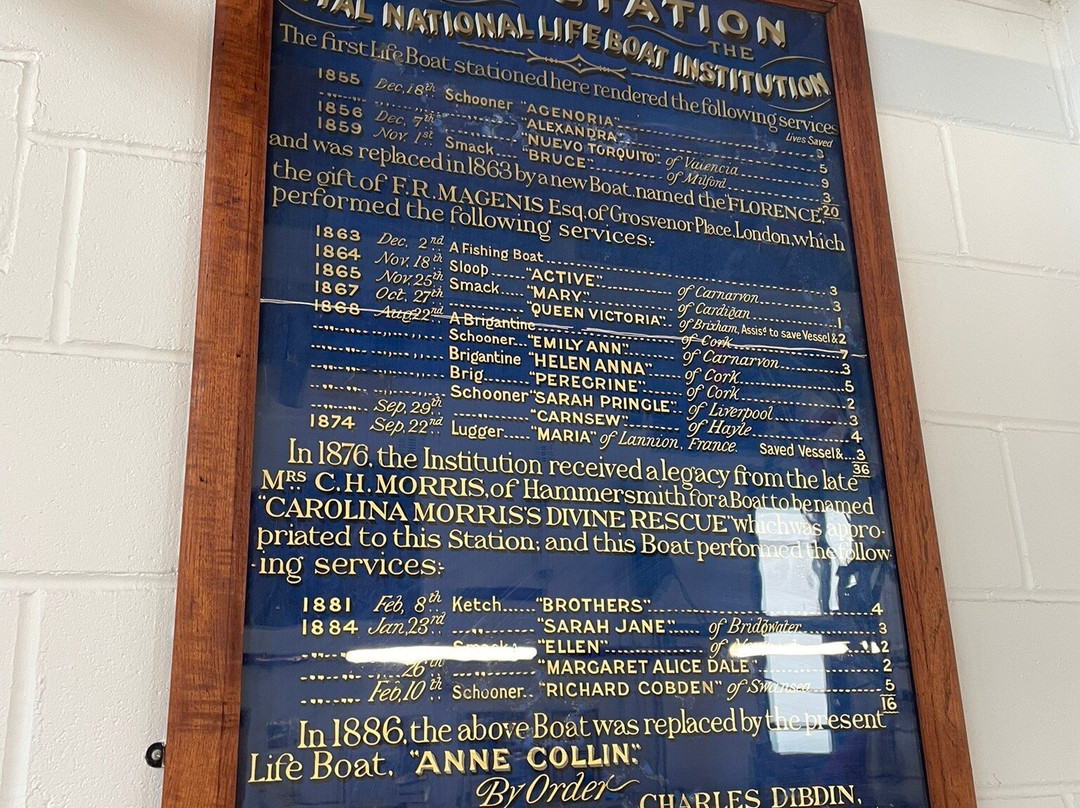 STATION
THE
NATIONAL LIFE BOAT INSTITUTION
The first Life Boat stationed here rendered the following services
Lives Saved
1855 Dec, 18th Schooner "AGENORIA" 3
"ALEXANDRA" 5
1856 Dec, 7th "NUEVO TORQUITO" of Valencia 9
1859 Nov, 1st Smack "BRUCE" of Milford 3
20
and was replaced in 1863 by a new Boat, named the "FLORENCE,"
the gift of F.R. MAGENIS Esq, of Grosvenor Place, London, which
performed the following services:-
1863 Dec, 2nd A Fishing Boat 3
1864 Nov, 18th Sloop "ACTIVE" of Carnarvon 3
1865 Nov, 25th Smack "MARY" of Cardigan 1
1867 Oct, 27th "QUEEN VICTORIA" of Brixham, Assisd to save Vessel & 2
1868 Aug 22nd A Brigantine of Cork 7
Schooner "EMILY ANN" of Carnarvon 3
Brigantine "HELEN ANNA" of Cork 5
Brig "PEREGRINE" of Cork 2
Schooner "SARAH PRINGLE" of Liverpool 3
Sep, 29th "CARNSEW" of Hayle 4
1874 Sep, 22nd Lugger "MARIA" of Lannion, France. Saved Vessel & 3
36
In 1876, the Institution received a legacy from the late
MRS C. H. MORRIS, of Hammersmith for a Boat to be named
"CAROLINA MORRIS'S DIVINE RESCUE" which was appro-
priated to this Station; and this Boat performed the follow-
-ing services:-
1881 Feb, 8th Ketch "BROTHERS" 4
1884 Jan, 23rd "SARAH JANE" of Bridgwater 3
Smack "ELLEN" of 2
26th "MARGARET ALICE DALE" 2
Feb, 10th Schooner "RICHARD COBDEN" of Swansea 5
16
In 1886, the above Boat was replaced by the present
Life Boat, "ANNE COLLIN."
By Order
CHARLES DIBDIN,